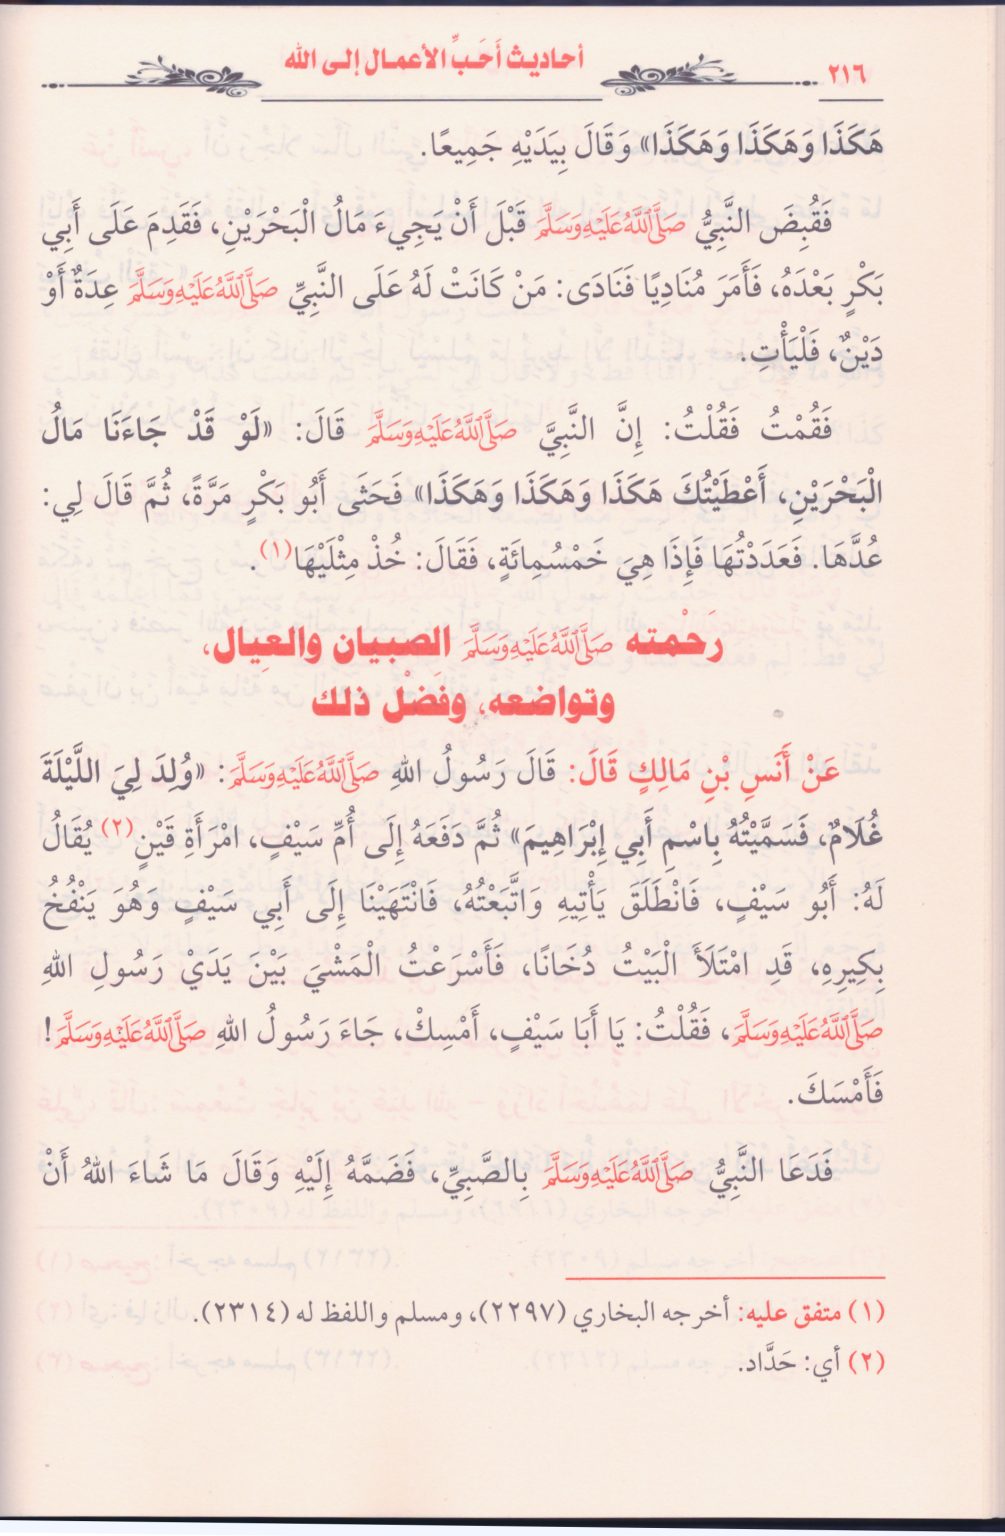 ٢١٦
أحاديث أَحَبِّ الأعمال إلى الله
هَكَذَا وَهَكَذَا وَهَكَذَا» وَقَالَ بِيَدَيْهِ جَمِيعًا.
فَقُبِضَ النَّبِيُّ صَلَّى اللَّهُ عَلَيْهِ وَسَلَّمَ قَبْلَ أَنْ يَجِيءَ مَالُ الْبَحْرَيْنِ، فَقَدِمَ عَلَى أَبِي
بَكْرٍ بَعْدَهُ، فَأَمَرَ مُنَادِيًا فَنَادَى: مَنْ كَانَتْ لَهُ عَلَى النَّبِيِّ صَلَّى اللَّهُ عَلَيْهِ وَسَلَّمَ عِدَةٌ أَوْ
دَيْنٌ، فَلْيَأْتِ.
فَقُمْتُ فَقُلْتُ: إِنَّ النَّبِيَّ صَلَّى اللَّهُ عَلَيْهِ وَسَلَّمَ قَالَ: «لَوْ قَدْ جَاءَنَا مَالُ
الْبَحْرَيْنِ، أَعْطَيْتُكَ هَكَذَا وَهَكَذَا وَهَكَذَا» فَحَثَى أَبُو بَكْرٍ مَرَّةً، ثُمَّ قَالَ لِي:
عُدَّهَا. فَعَدَدْتُهَا فَإِذَا هِيَ خَمْسُمِائَةٍ، فَقَالَ: خُذْ مِثْلَيْهَا(١).
رَحْمته صَلَّى اللَّهُ عَلَيْهِ وَسَلَّمَ الصبيان والعِيال،
وتواضعه، وفَضْل ذلك
عَنْ أَنَسِ بْنِ مَالِكٍ قَالَ: قَالَ رَسُولُ اللهِ صَلَّى اللَّهُ عَلَيْهِ وَسَلَّمَ: «وُلِدَ لِيَ اللَّيْلَةَ
غُلَامٌ، فَسَمَّيْتُهُ بِاسْمِ أَبِي إِبْرَاهِيمَ» ثُمَّ دَفَعَهُ إِلَى أُمِّ سَيْفٍ، امْرَأَةِ قَيْنٍ(٢) يُقَالُ
لَهُ: أَبُو سَيْفٍ، فَانْطَلَقَ يَأْتِيهِ وَاتَّبَعْتُهُ، فَانْتَهَيْنَا إِلَى أَبِي سَيْفٍ وَهُوَ يَنْفُخُ
بِكِيرِهِ، قَدِ امْتَلَأَ الْبَيْتُ دُخَانًا، فَأَسْرَعْتُ الْمَشْيَ بَيْنَ يَدَيْ رَسُولِ اللهِ
صَلَّى اللَّهُ عَلَيْهِ وَسَلَّمَ، فَقُلْتُ: يَا أَبَا سَيْفٍ، أَمْسِكْ، جَاءَ رَسُولُ اللهِ صَلَّى اللَّهُ عَلَيْهِ وَسَلَّمَ!
فَأَمْسَكَ.
فَدَعَا النَّبِيُّ صَلَّى اللَّهُ عَلَيْهِ وَسَلَّمَ بِالصَّبِيِّ، فَضَمَّهُ إِلَيْهِ وَقَالَ مَا شَاءَ اللهُ أَنْ
(١) متفق عليه: أخرجه البخاري (٢٢٩٧)، ومسلم واللفظ له (٢٣١٤).
(٢) أي: حَدَّاد.